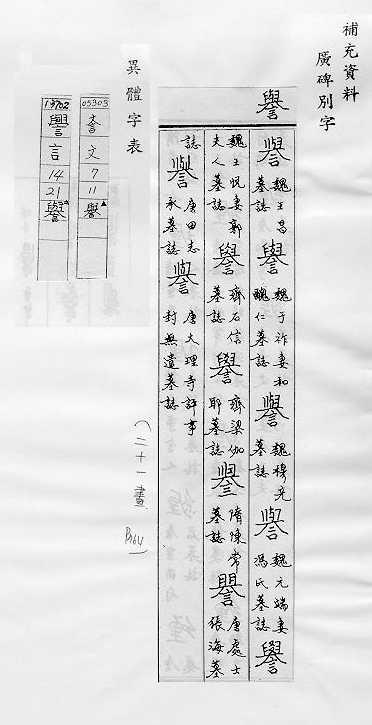 補充資料
廣碑別字
譽
譽 魏王昌墓誌 譽 魏于祚妻和醜仁墓誌 譽 魏穆亮墓誌 譽 魏元端妻馮氏墓誌 譽
魏王悅妻郭夫人墓誌 譽 齊石信墓誌 譽 齊梁伽耶墓誌 譽 隋陳常墓誌 譽 唐處士張海墓
誌 譽 唐田志承墓誌 譽 唐大理寺評事封無遺墓誌
(二十一畫 P.164)
異體字表
05303 文 7 11 譽
13702 譽 言 14 21 譽